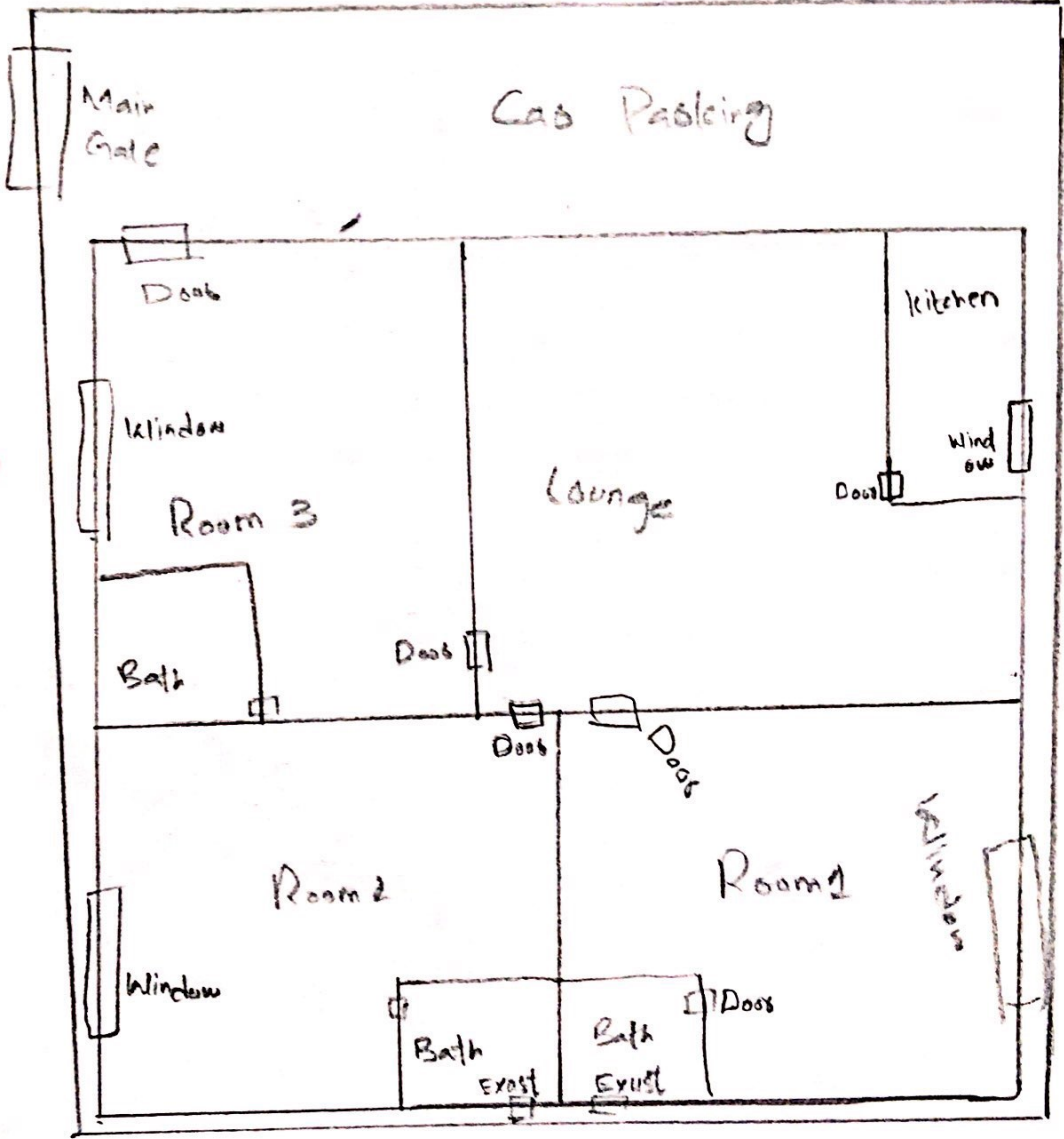 Main
Gate
Car Parking
Door
Kitchen
Window
Wind
ow
Door
Lounge
Room 3
Door
Bath
Door
Door
Window
Room 2
Room 1
Window
Door
Bath
Bath
Exost
Exust